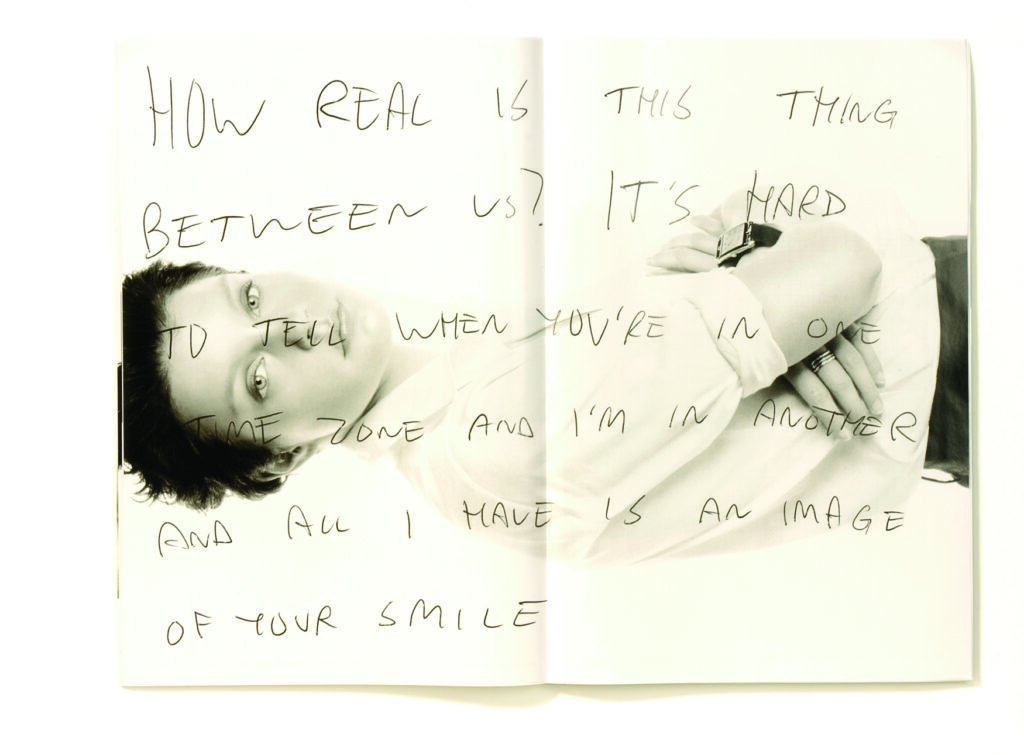 HOW REAL IS THIS THING
BETWEEN US? IT'S HARD
TO TELL WHEN YOU'RE IN ONE
TIME ZONE AND I'M IN ANOTHER
AND ALL I HAVE IS AN IMAGE
OF YOUR SMILE